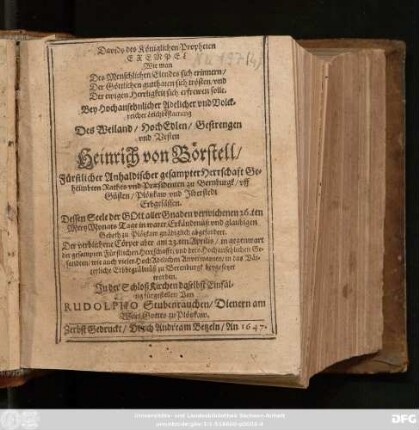 Davids des Königlichen Propheten
EXEMPEL
Wie man
Des Menschlichen Elendes sich erinnern/
Der Göttlichen gnathaten sich trösten/ vnd
Der ewigen Herrligkeit sich erfrewen solle.
Bey Hochansehnlicher Adelicher vnd Volck-
reicher Leichbestattung
Des Weiland/ HochEdlen/ Gestrengen
vnd Vesten
Heinrich von Börstell/
Fürstlicher Anhaldischer gesampter Herrschafft Ge-
heimbten Rathes vnd Præsidenten zu Bernburgk/ vff
Güsten/ Plötzkaw vnd Ilberstedt
Erbgesässen.
Dessen Seele der GOtt aller Gnaden verwichenen 26.ten
Mertz Monats Tage in warer Erkändnüß vnd glaubigen
Gebeth zu Plötzkaw gnädiglich abgefordert.
Der verblichene Cörper aber am 23.ten Aprilis/ in gegenwart
der gesampten Fürstlichen Herrschafft/ vnd dero Hochansehnlichen Ge-
sandten/ wie auch vielen HochAdelichen Anverwanten/ in das Vä-
terliche Erbbegräbnüß zu Bernburgk beygesetzet
worden.
In der Schloß Kirchen daselbst Einfäl-
tig fürgestellet Von
RUDOLPHO Stubenrauchen/ Dienern am
Wort Gottes zu Plötzkaw.
Zerbst Gedruckt/ Durch Andream Betzeln/ An 1647.
Xa 197(4)
Universitäts- und Landesbibliothek Sachsen-Anhalt
DFG